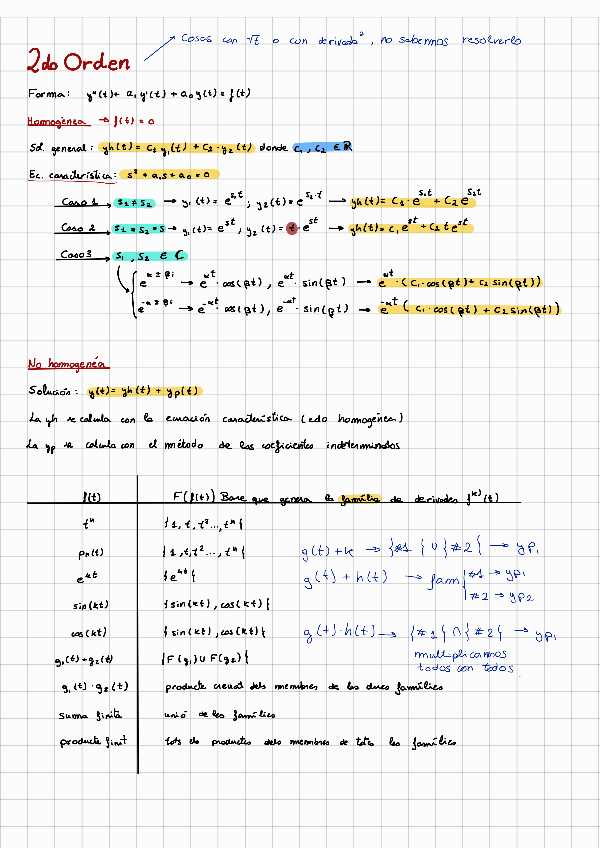 Cosas con √t o con derivada², no sabemos resolverlo
2do Orden
Forma: y''(t) + a₁ y'(t) + a₀ y(t) = f(t)
Homogénea → f(t) = 0
Sol. general: yh(t) = C₁ y₁(t) + C₂ · y₂(t) donde C₁, C₂ ∈ ℝ
Ec. característica: s² + a₁s + a₀ = 0
Caso 1 s₁ ≠ s₂ → y₁(t) = e^{s₁t}; y₂(t) = e^{s₂·t} → yh(t) = C₁ · e^{s₁t} + C₂ e^{s₂t}
Caso 2 s₁ = s₂ = s → y₁(t) = e^{st}; y₂(t) = t · e^{st} → yh(t) = C₁ e^{st} + C₂ t e^{st}
Caso 3 s₁, s₂ ∈ ℂ
e^{α ± βi} → e^{αt} · cos(βt), e^{αt} · sin(βt) → e^{αt} · (C₁ · cos(βt) + C₂ sin(βt))
e^{-α ± βi} → e^{-αt} · cos(βt), e^{-αt} · sin(βt) → e^{-αt} (C₁ · cos(βt) + C₂ sin(βt))
No homogenéa
Solución: y(t) = yh(t) + yp(t)
La yh se calcula con la ecuación característica (edo homogénea)
La yp se calcula con el método de los coeficientes indeterminados
f(t) F(f(t)) Base que genera la família de derivades f^{(k)}(t)
tⁿ {1, t, t² ..., tⁿ}
pₙ(t) {1, t, t² ..., tⁿ} g(t) + k → {#1} ∪ {#2} → yp₁
e^{kt} {e^{kt}} g(t) + h(t) → fam #1 → yp₁
#2 → yp2
sin(kt) {sin(kt), cos(kt)}
cos(kt) {sin(kt), cos(kt)} g(t) · h(t) → {#1} ∩ {#2} → yp₁
multiplicamos
todos con todos
g₁(t) + g₂(t) {F(g₁) ∪ F(g₂)}
g₁(t) · g₂(t) producte creuat dels membres de les dues famílies
suma finita unió de les famílies
producte finit tots els productes dels membres de totes les famílies